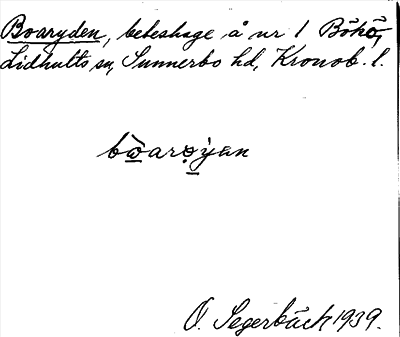 Boaryden, beteshage å nr 1 Bökö,
Lidhults sn, Sunnerbo hd, Kronob. l.
bòarø̀yen
O. Segerbäck 1939.